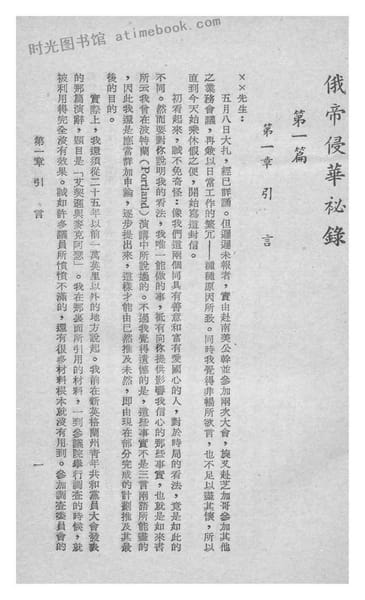 时光图书馆 atimebook.com
俄帝侵華祕錄
第一篇
第一章 引言
××先生：
五月八日大札，經已詳誦。但遲遲未報者，實由赴南美公幹並參加兩次大會，旋又赴芝加哥參加其他
之業務會議，再兼以日常工作的繁冗——種種原因所致。同時我覺得非暢所欲言，也不足以盡其懷，所以
直到今天始乘休假之便，開始寫這封信。
初看起來，誠不免奇怪：像我們這兩個同具有善意和富有愛國心的人，對於時局的看法，竟是如此的
不同。然而要對你說明我的看法，我唯一能做的事，祗有向你提供影響我信心的那些事實，也就是如來書
所云我曾在波特蘭（Portland）演講中所說過的。不過我覺得遺憾的是，這些事實不是三言兩語所能盡的
，因此我還是應當詳加申論，逐步提出來，這樣才能由已然推及未然，即由現在部分完成的計劃推及其最
後的目的。
實際上，我還須從二十五年以前一萬英里以外的地方說起。我前在新英格蘭州青年共和黨員大會發表
的那篇演辭，題目是「艾契遜與麥克阿瑟」。我在那裏面所引用的材料，一到參議院舉行調查的時候，就
被利用得完全沒有效果。誠如許多議員所憤憤不滿的，還有很多材料根本就沒有用到。參加調查委員會的
第一章 引言
一